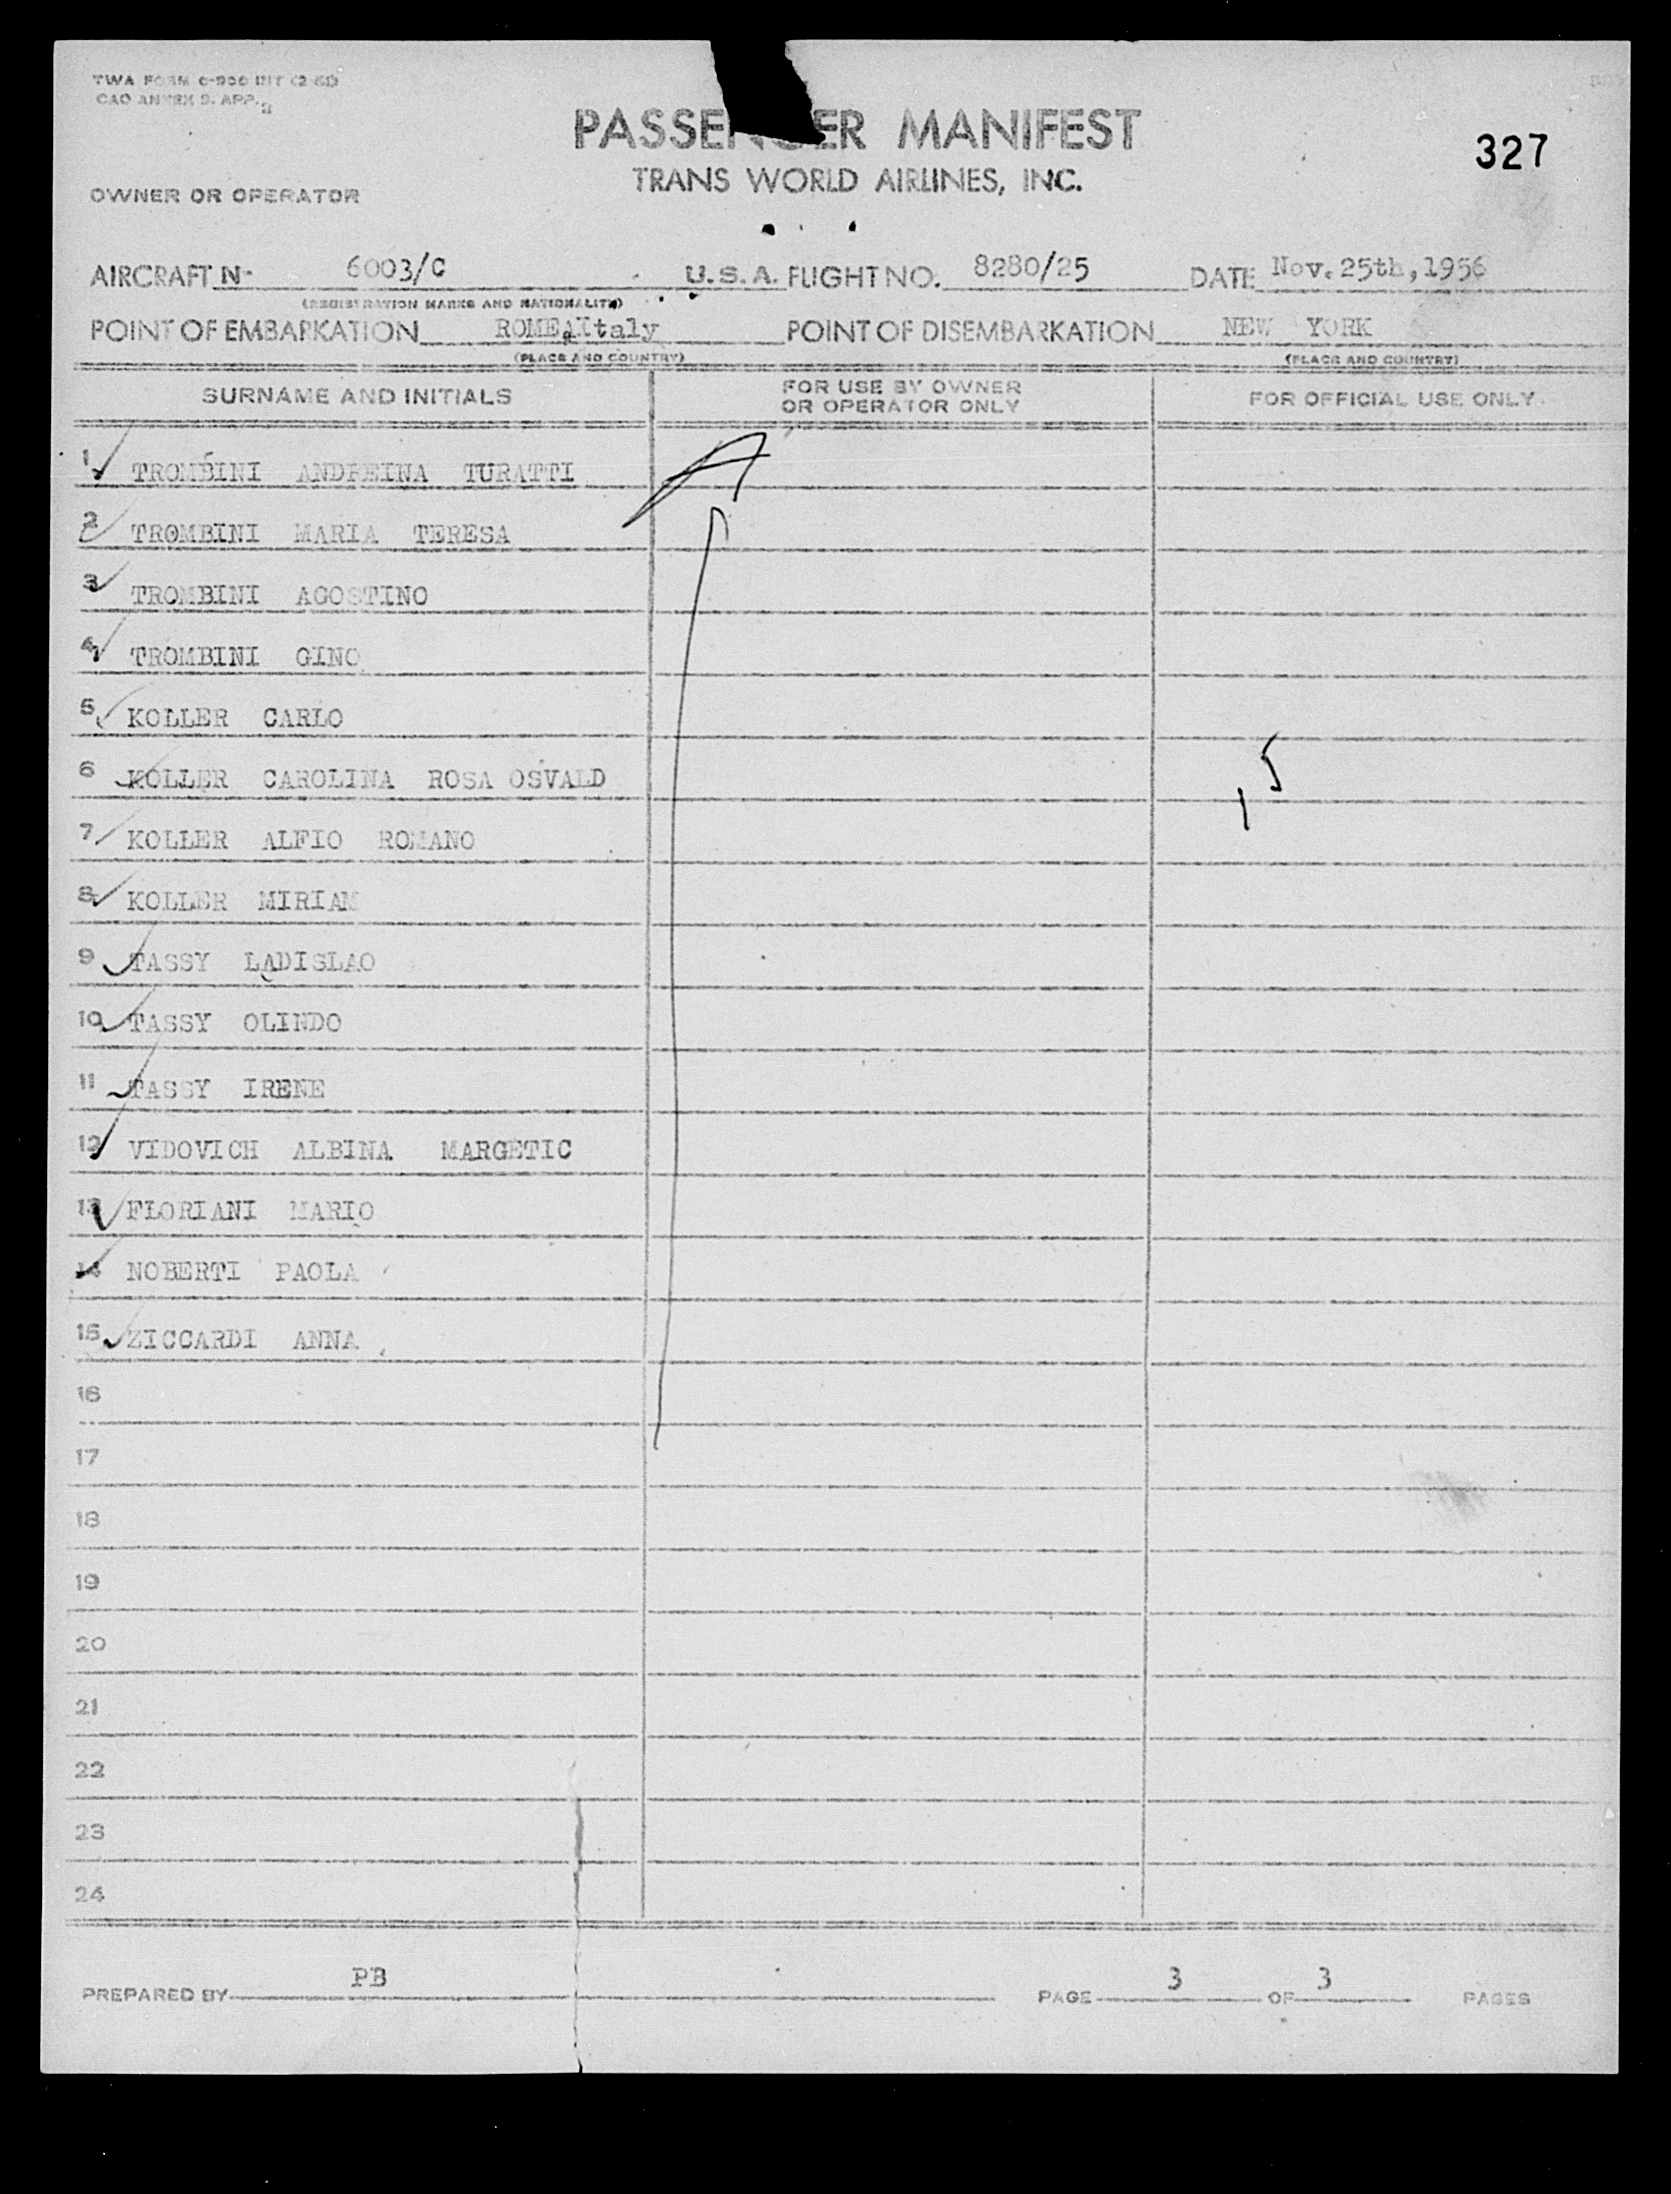 TWA FORM
PASSENGER MANIFEST
327
TRANS WORLD AIRLINES, INC.
OWNER OR OPERATOR
AIRCRAFT N- 6003/C U.S.A. FLIGHT NO. 8280/25 DATE Nov. 25th, 1956
(REGISTRATION MARKS AND NATIONALITY)
POINT OF EMBARKATION ROME Italy POINT OF DISEMBARKATION NEW YORK
(PLACE AND COUNTRY) (PLACE AND COUNTRY)
SURNAME AND INITIALS FOR USE BY OWNER OR OPERATOR ONLY FOR OFFICIAL USE ONLY
1 TROMBINI ANDREINA TURATTI
2 TROMBINI MARIA TERESA
3 TROMBINI AGOSTINO
4 TROMBINI GINO
5 KOLLER CARLO
6 KOLLER CAROLINA ROSA OSVALD
15
7 KOLLER ALFIO ROMANO
8 KOLLER MIRIAM
9 TASSY LADISLAO
10 TASSY OLINDO
11 TASSY IRENE
12 VIDOVICH ALBINA MARGETIC
13 FLORIANI MARIO
14 NOBERTI PAOLA
15 ZICCARDI ANNA
16
17
18
19
20
21
22
23
24
PREPARED BY PB PAGE 3 OF 3 PAGES